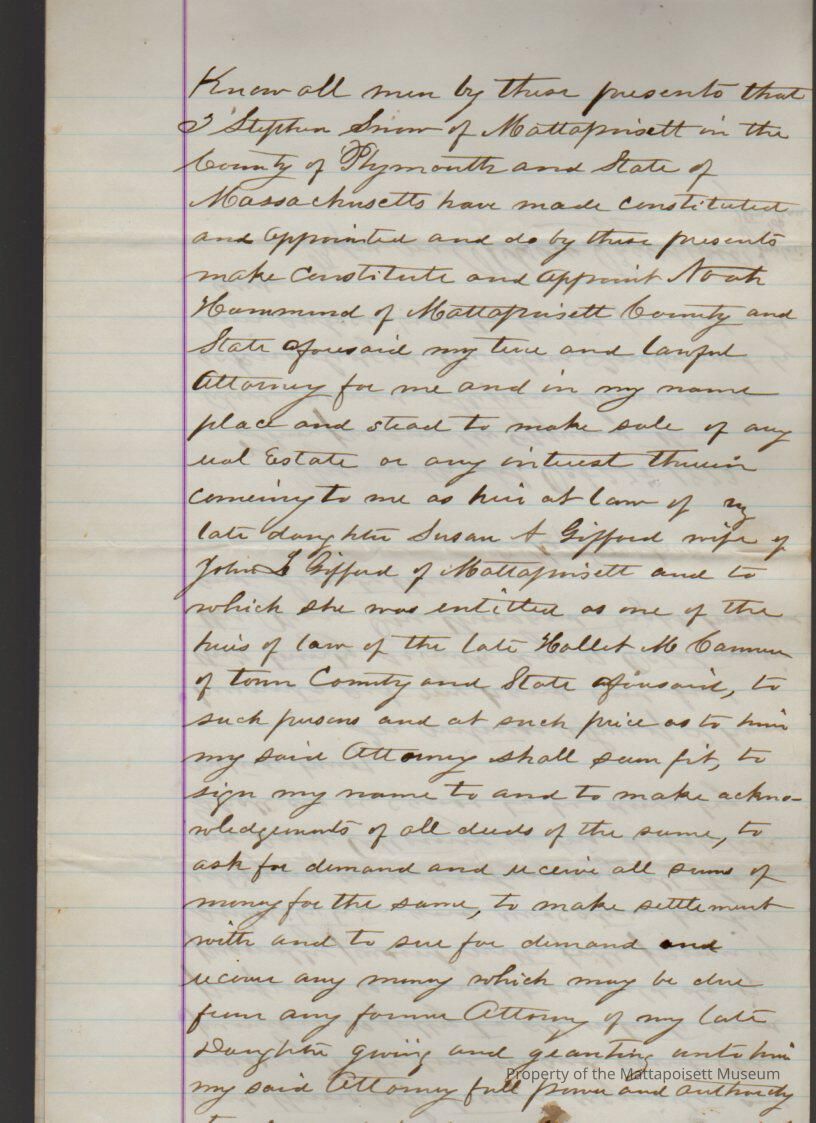 Know all men by these presents that
I Stephen Snow of Mattapoisett in the
County of Plymouth and State of
Massachusetts have made constituted
and appointed and do by these presents
make constitute and appoint Noah
Hammond of Mattapoisett County and
State aforesaid my true and lawful
Attorney for me and in my name
place and stead to make sale of any
real Estate or any interest therein
comeing to me as heir at law of my
late daughter Susan A Gifford wife of
John L Gifford of Mattapoisett and to
which she was entitled as one of the
heirs of law of the late Hallet M Cannon
of town County and State aforesaid, to
such persons and at such price as to him
my said Attorney shall seem fit, to
sign my name to and to make ackno-
wledgements of all deeds of the same, to
ask for demand and receive all sums of
money for the same, to make settlement
with and to sue for demand and
recover any money which may be due
from any former Attorney of my late
Daughter giving and granting unto him
my said Attorney full power and authority
Property of the Mattapoisett Museum